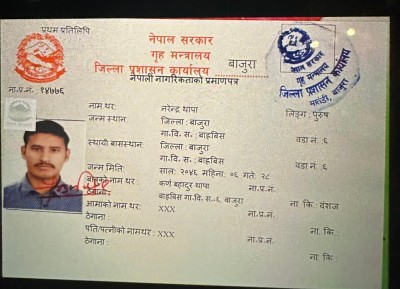 प्रथम प्रतिलिपि
नेपाल सरकार
गृह मन्त्रालय
जिल्ला प्रशासन कार्यालय बाजुरा
नेपाली नागरिकताको प्रमाणपत्र
नेपाल सरकार
गृह मन्त्रालय
जिल्ला प्रशासन कार्यालय
बाजुरा
ना.प्र.नं. १४७७६
नाम थर: नरेन्द्र थापा लिङ्ग: पुरुष
जन्म स्थान: जिल्ला : बाजुरा
गा.वि. स.: बाह्रबिस वडा नं :६
स्थायी बासस्थान: जिल्ला: बाजुरा
गा.वि. स.: बाह्रबिस वडा नं :६
जन्म मिति: साल: २०४६ महिना: ०६ गते: २८
बाबुको नाम थर : कर्ण बहादुर थापा ना.प्र.नं.
ठेगाना: बाह्रबिस गा.वि. स.-६, बाजुरा ना. कि: वंशज
आमाको नाम थर: XXX ना.प्र.नं.
ठेगाना : ना. कि :
पति/पत्नीको नामथर : XXX ना.प्र.नं.
ठेगाना : ना. कि :